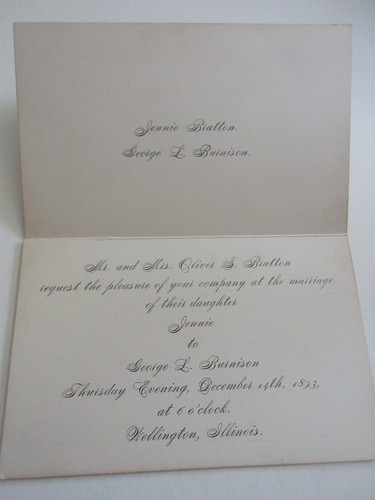 Jennie Bratton.
George L. Burnison.
Mr. and Mrs. Oliver S. Bratton
request the pleasure of your company at the marriage
of their daughter
Jennie
to
George L. Burnison
Thursday Evening, December 14th, 1893,
at 6 o'clock.
Wellington, Illinois.